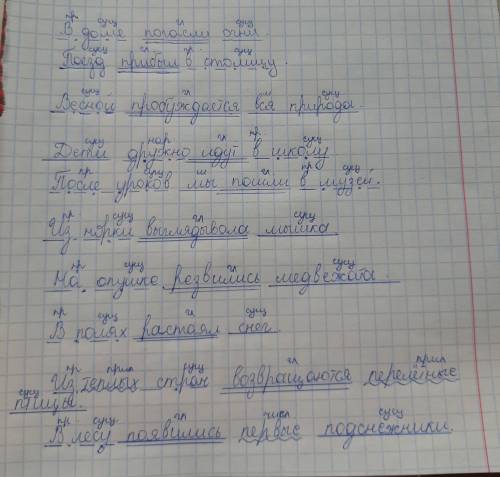 пр сущ гл сущ
В доме погасли огни.
сущ гл пр сущ
Поезд прибыл в столицу.
сущ гл м сущ
Весной пробуждается вся природа.
сущ нар гл пр сущ
Дети дружно идут в школу
пр сущ м гл пр сущ
После уроков мы пошли в музей.
пр сущ гл сущ
Из норки выглядывала мышка
пр сущ гл сущ
На опушке резвились медвежата.
пр сущ гл сущ
В полях растаял снег
пр прил сущ гл прил
Из тёплых стран возвращаются перелётные
сущ
птицы.
пр сущ гл числ сущ
В лесу появились первые подснежники.